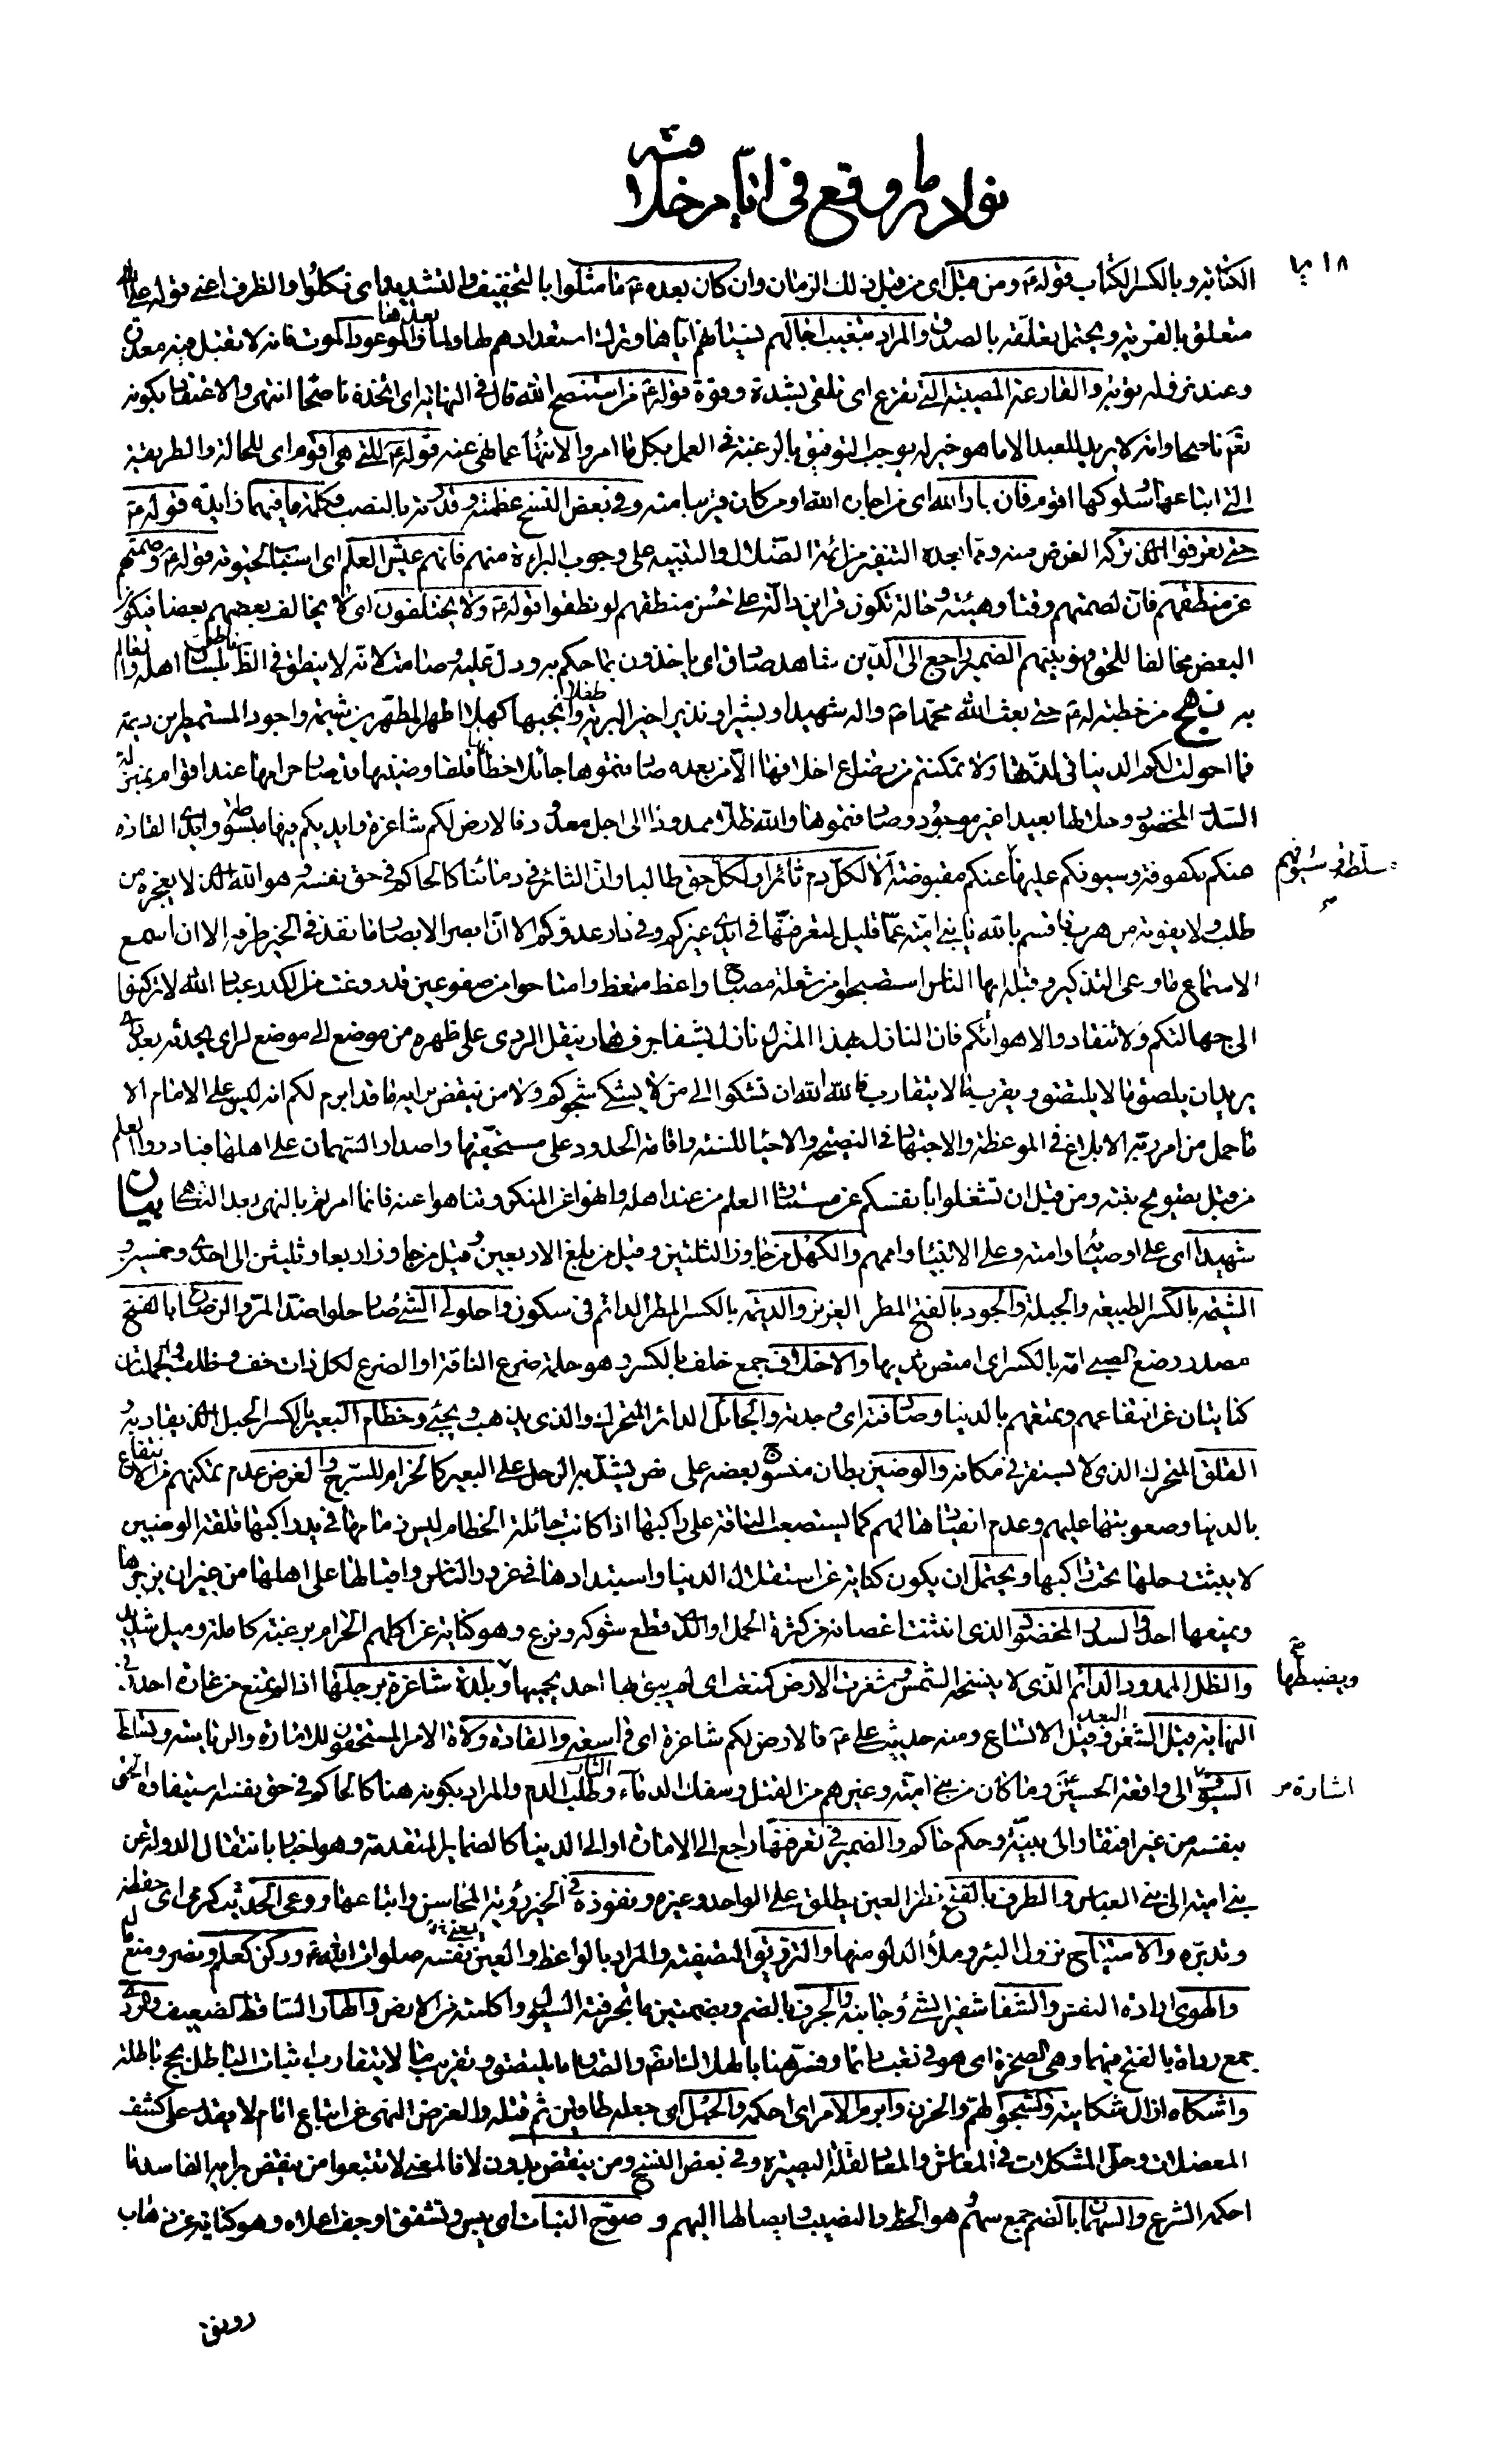 نوادر ما وقع في ايام خلافته
الكناية وبالكسر الكتاب قوله ع ومن قبل اى من قبل ذلك الزمان وان كان بعده ع ما مثلوا بالتخفيف والتشديد اى نكلوا والظرف اعنى قوله على الله
متعلق بالفرية ويحتمل تعلقه بالصدق والمراد بتغيب اجالهم نسيانهم اياها وترك استعدادهم لها ولما بعدها والموعود الموت فانه لا تقبل فيه معذرة
وعند نزوله توبة والقارعة المصيبة التى تقرع اى تلقى بشدة وقوة قوله ع من استنصح الله قال فى النهاية اى اتخذه ناصحا انتهى والاعتقاد بكونه
تعالى ناصحا وانه لا يريد للعبد الا ما هو خير له يوجب التوفيق بالرغبة فى العمل بكل ما امر والانتهاء عما نهى عنه قوله ع للتى هى اقوم اى للحالة والطريقة
التى اتباعها وسلوكها اقوم فان جار الله اى من اجاره الله او من كان قريبا منه وفى بعض النسخ عظمته وقدرته بالنصب وكلمة ما فيهما زايدة قوله ع
حتى تعرفوا الذى تركه الغرض منه ومما بعده التنفير من ائمة الضلال والتنبيه على وجوب البراءة منهم فانهم عيش العلم اى اسباب لحيوته قوله ع وصمتهم
عن منطقهم فان لصمتهم وقتا وهيئة وحالة تكون قراين دالة على حسن منطقهم لو نطقوا قوله ع ولا يختلفون اى لا يخالف بعضهم بعضا فيكون
البعض مخالفا للحق فهو بينهم الضمير راجع الى الدين شاهد صادق اى ياخذون بما حكم به ودل عليه وصامت لانه لا ينطق فى الظاهر ناطق بلسان اهله والعالم
به نهج من خطبة له ع حتى بعث الله محمدا ص واله شهيدا وبشيرا ونذيرا خير البرية طفلا وانجبها كهلا اطهر المطهرين شيمة واجود المستمطرين ديمة
فما احلولت لكم الدنيا فى لذتها ولا تمكنتم من رضاع اخلافها الا من بعده صادفتموها جائلا خطامها قلقا وضينها قد صار حرامها عند اقوام بمنزلة
السدر المخضود وحلالها بعيدا غير موجود وصادفتموها والله ظلا ممدودا الى اجل معدود فالارض لكم شاغرة وايديكم فيها مبسوطة وايدى القادة
عنكم مكفوفة وسيوفكم عليهم مسلطة وسيوفهم عنكم مقبوضة الا لكل دم ثائرا ولكل حق طالبا وان الثائر فى دمائنا كالحاكم فى حق نفسه وهو الله الذى لا يعجزه من
طلب ولا يفوته من هرب فاقسم بالله يا بنى امية عما قليل لتعرفنها فى ايدى غيركم وفى دار عدوكم الا ان ابصر الابصار ما نفذ فى الخير طرفه الا ان اسمع
الاسماع ما وعى التذكير وقبله ايها الناس استصبحوا من شعلة مصباح واعظ متعظ وامتاحوا من صفو عين قد روقت من الكدر عباد الله لا تركنوا
الى جهالتكم ولا تنقادوا الى اهوائكم فان النازل بهذا المنزل نازل بشفا جرف هار ينقل الردى على ظهره من موضع الى موضع لراى يحدثه بعد راى
يريد ان يلصق ما لا يلتصق ويقرب ما لا يتقارب فالله الله ان تشكوا الى من لا يشكى شجوكم ولا من ينقض برايه ما قد ابرم لكم انه ليس على الامام الا
ما حمل من امر ربه الابلاغ فى الموعظة والاجتهاد فى النصيحة والاحياء للسنة واقامة الحدود على مستحقيها واصدار السهمان على اهلها فبادروا العلم
من قبل تصويح نبته ومن قبل ان تشغلوا بانفسكم عن مستثار العلم من عند اهله وانهوا عن المنكر وتناهوا عنه فانما امرتم بالنهى بعد التناهى بيان
شهيدا اى على اوصيائه وامته وعلى الانبياء واممهم والكهل من جاوز الثلثين وقيل من بلغ الاربعين وقيل من جاوز اربعا وثلثين الى احدى وخمسين و
الشيمة بالكسر الطبيعة والجبلة والجود بالفتح المطر الغزير والديمة بالكسر المطر الدائم فى سكون واحلولى الشىء صار حلوا ضد المر والرضاع بالفتح
مصدر رضع الصبى امه بالكسر اى امتص ثديها والاخلاف جمع خلف بالكسر وهو حلمة ضرع الناقة او الضرع لكل ذات خف وظلف والجملتان
كنايتان عن انتفاعهم وتمتعهم بالدنيا وصادفته اى وجدته والجائل الدائر المتحرك والذى يذهب ويجئ وخطام البعير بالكسر الحبل الذى يقاد به و
القلق المتحرك الذى لا يستقر فى مكانه والوضين بطان منسوج بعضه على بعض يشد به الرحل على البعير كالحزام للسرج والغرض عدم تمكنهم من الانتفاع
بالدنيا وصعوبتها عليهم وعدم انقيادها لهم كما يستصعب الناقة على راكبها اذا كانت جائلة الخطام ليس زمامها فى يد راكبها قلقة الوضين
لا يثبت رحلها تحت راكبها ويحتمل ان يكون كناية عن استقلال الدنيا واستبدادها فى غرور الناس واقبالها على اهلها من غير ان يزجرها
ويضبطها ويمنعها احد والسدر المخضود الذى انثنت اغصانه من كثرة الحمل او الذى قطع شوكه ونزع وهو كناية عن اكلهم الحرام برغبة كاملة وميل شديد
والظل الممدود الدائم الذى لا ينسخه الشمس وشغرت الارض كمنعت اى لم يبق بها احد يحميها وبلدة شاغرة برجلها اذا لم تمتنع من غارة احد وفى
النهاية قيل الشغر البعد وقيل الاتساع ومنه حديث على ع فالارض لكم شاغرة اى واسعة والقادة ولاة الامر المستحقون للامارة والرياسة وتسلط
السيوف اشارة الى واقعة الحسين ع وما كان من بنى امية وغيرهم من القتل وسفك الدماء والثار طلب الدم والمراد بكونه هنا كالحاكم فى حق نفسه استيفاؤه الحق
بنفسه من غير افتقار الى بينة وحكم حاكم والضمير فى تعرفنها راجع الى الامارة او الى الدنيا كالضماير المتقدمة وهو اخبار بانتقال الدولة عن
بنى امية الى بنى العباس والطرف بالفتح نظر العين يطلق على الواحد وغيره ونفوذه فى الخير رؤية المحاسن واتباعها ووعى الحديث كرمى اى حفظه
وتدبره والامتياح نزول البئر وملأ الدلو منها والترويق التصفية والمراد بالواعظ والعين نفسه صلوات الله عليه وركن كعلم ونصر ومنع مال
والهوى ارادة النفس والشفا شفير الشىء وجانبه والجرف بالضم وبضمتين ما تجرفته السيول واكلته من الارض والهار الساقط الضعيف والردى
جمع رداة بالفتح فيهما وهى الصخرة اى هو فى تعب دائما وفسر هنا بالهلاك ايضا والصاق ما لا يلتصق وتقريب ما لا يتقارب اثبات الباطل بحجج باطلة
واشكاه ازال شكايته والشجو الهم والحزن وابرم الامر اى احكمه والحبل اى جعله طاقين ثم فتله والغرض النهى عن اتباع امام لا يقدر على كشف
المعضلات وحل المشكلات فى المعاش والمعاد لقلة البصيرة وفى بعض النسخ ومن ينقض بدون لا فالمعنى لا تتبعوا من ينقض برايه الفاسد ما
احكمه الشرع والسهمان بالضم جمع سهم وهو الحظ والنصيب وايصالها اليهم وصوح النبات اى يبس وتشقق او جف اعلاه وهو كناية عن ذهاب
رونق